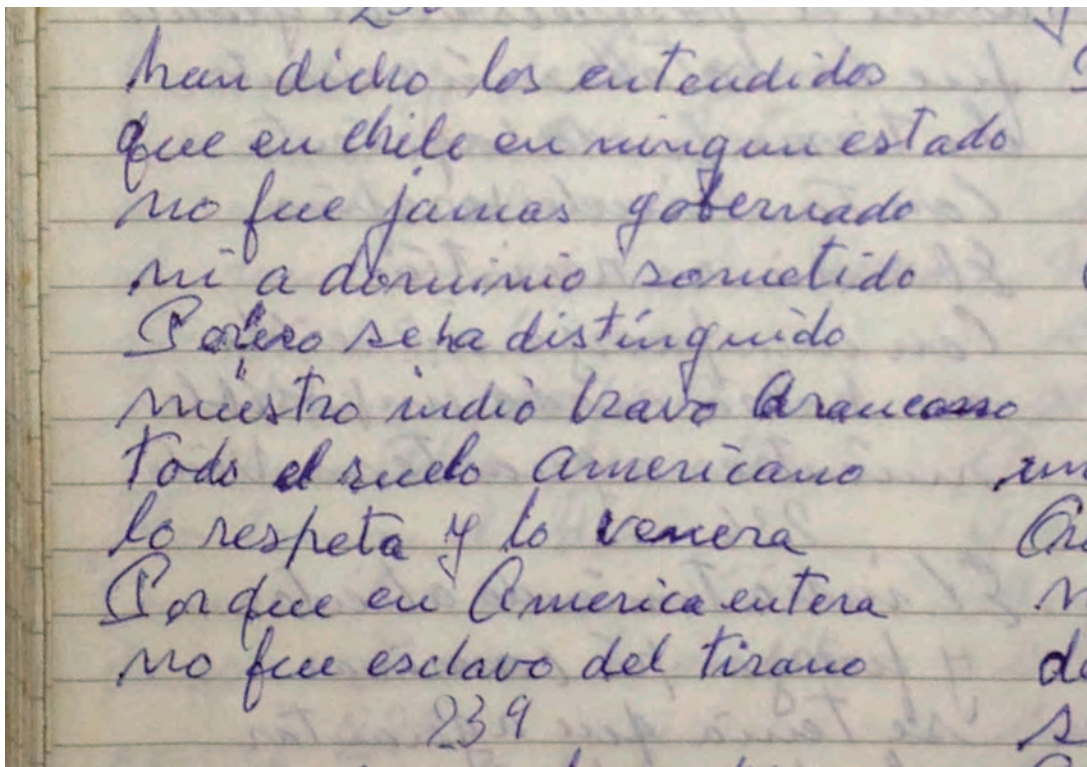 han dicho los entendidos
que en chile en ningun estado
no fue jamas gobernado
ni a dominio sometido
Por eso se ha distinguido
nuestro indio bravo Araucano
todo el suelo Americano
lo respeta y lo venera
Por que en America entera
no fue esclavo del tirano
239